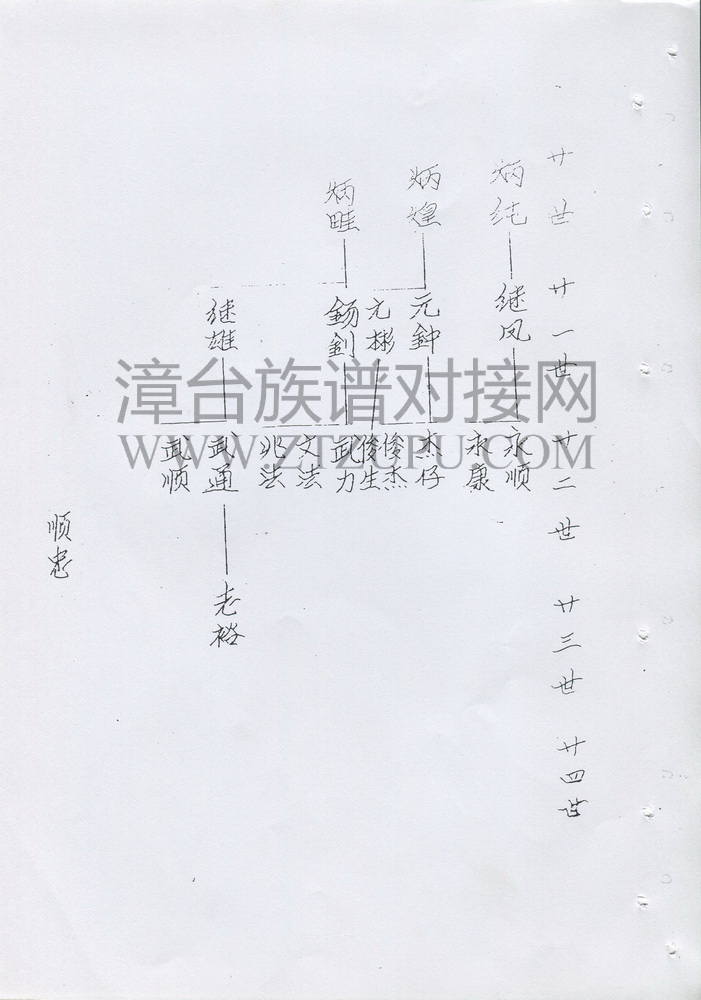 廿世 廿一世 廿二世 廿三世 廿四世
炳纯
继凤
永顺
永康
炳煌
元鈡
元彬
杰仔
俊杰
俊生
炳畦
钖釗
继雄
武力
文法
兆法
武通
武顺
志裕
顺忠
漳台族谱对接网
WWW.ZTZUPU.COM